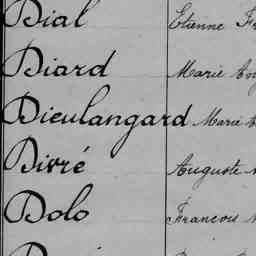 Dial Etienne
Diard Marie
Dieulangard Marie
Divré Auguste
Dolo Francois